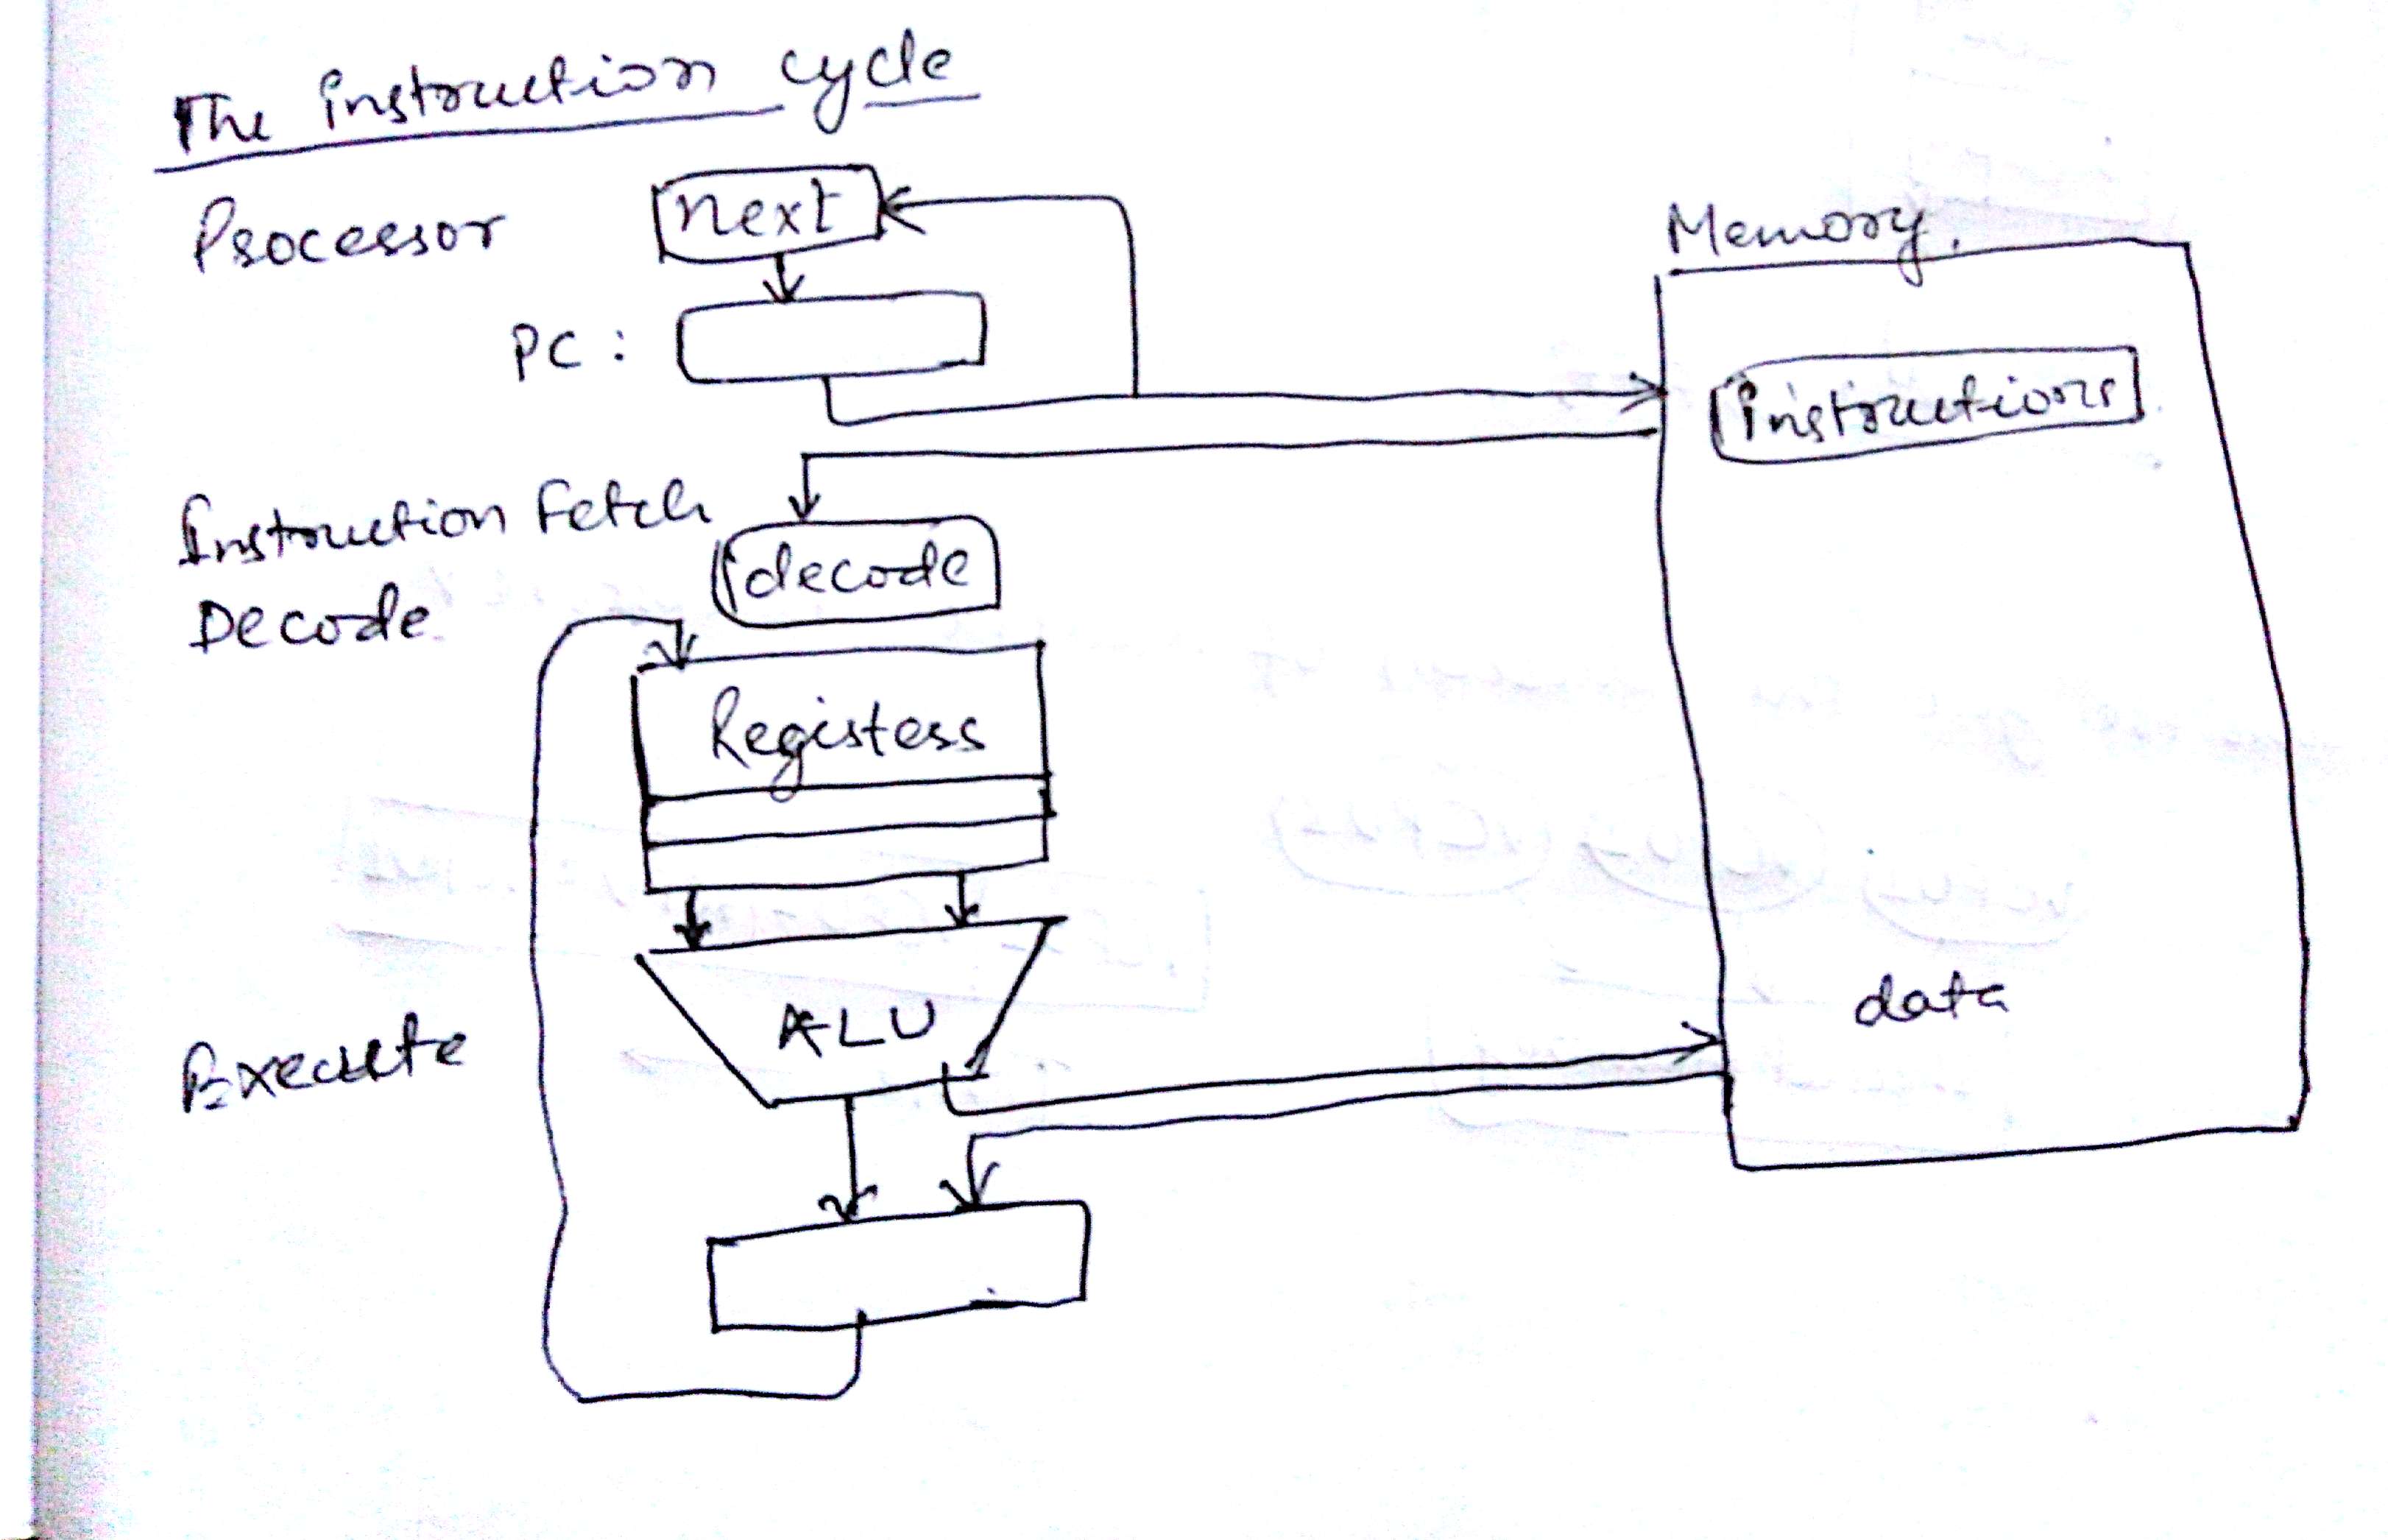 The instruction cycle
Processor
next
Memory.
PC :
instructions
Instruction Fetch
decode
Decode
Registers
data
ALU
Execute